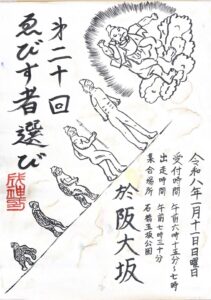 令和八年一月十一日日曜日
受付時間 午前六時十五分〜七時
出走時間 午前七時三十分
集合場所 石橋玉坂公園
於阪大坂
第二十回
ゑびす者選び